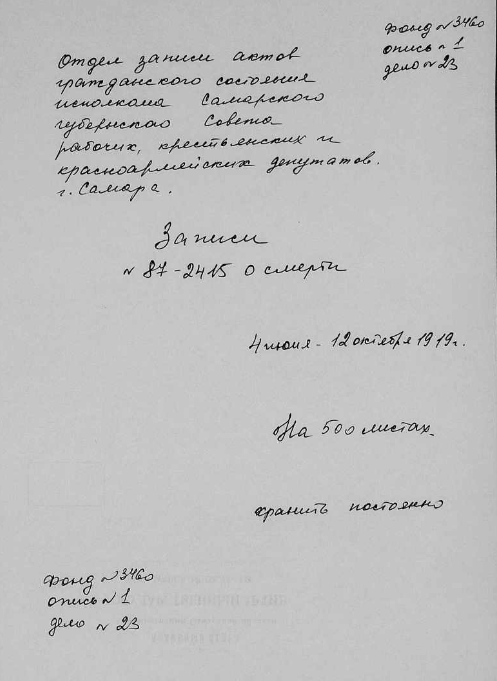 Фонд №3460
опись №1
дело №23
Отдел записи актов
гражданского состояния
исполкома Самарского
губернского Совета
рабочих, крестьянских и
красноармейских депутатов.
г. Самара.
Записи
№ 87-2415 о смерти
4 июня - 12 октября 1919г.
На 500 листах.
хранить постоянно
Фонд №3460
опись №1
дело №23